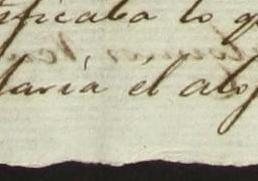 ificaba lo q
laria él alo